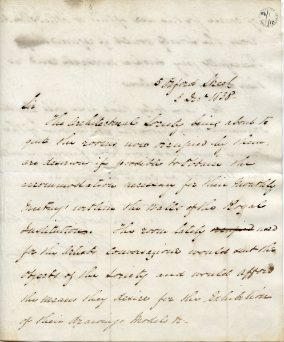 5 Oxford Street
Decr 1838
Sir
The Architectural Society being about to
quit the rooms now occupied by them,
are desirous if possible to obtain the
accommodation necessary for their Monthly
Meetings within the walls of the Royal
Institution. The room lately used
for the Conversazione would suit the
objects of the Society and would afford
the means they desire for the Exhibition
of their drawings Models &c.